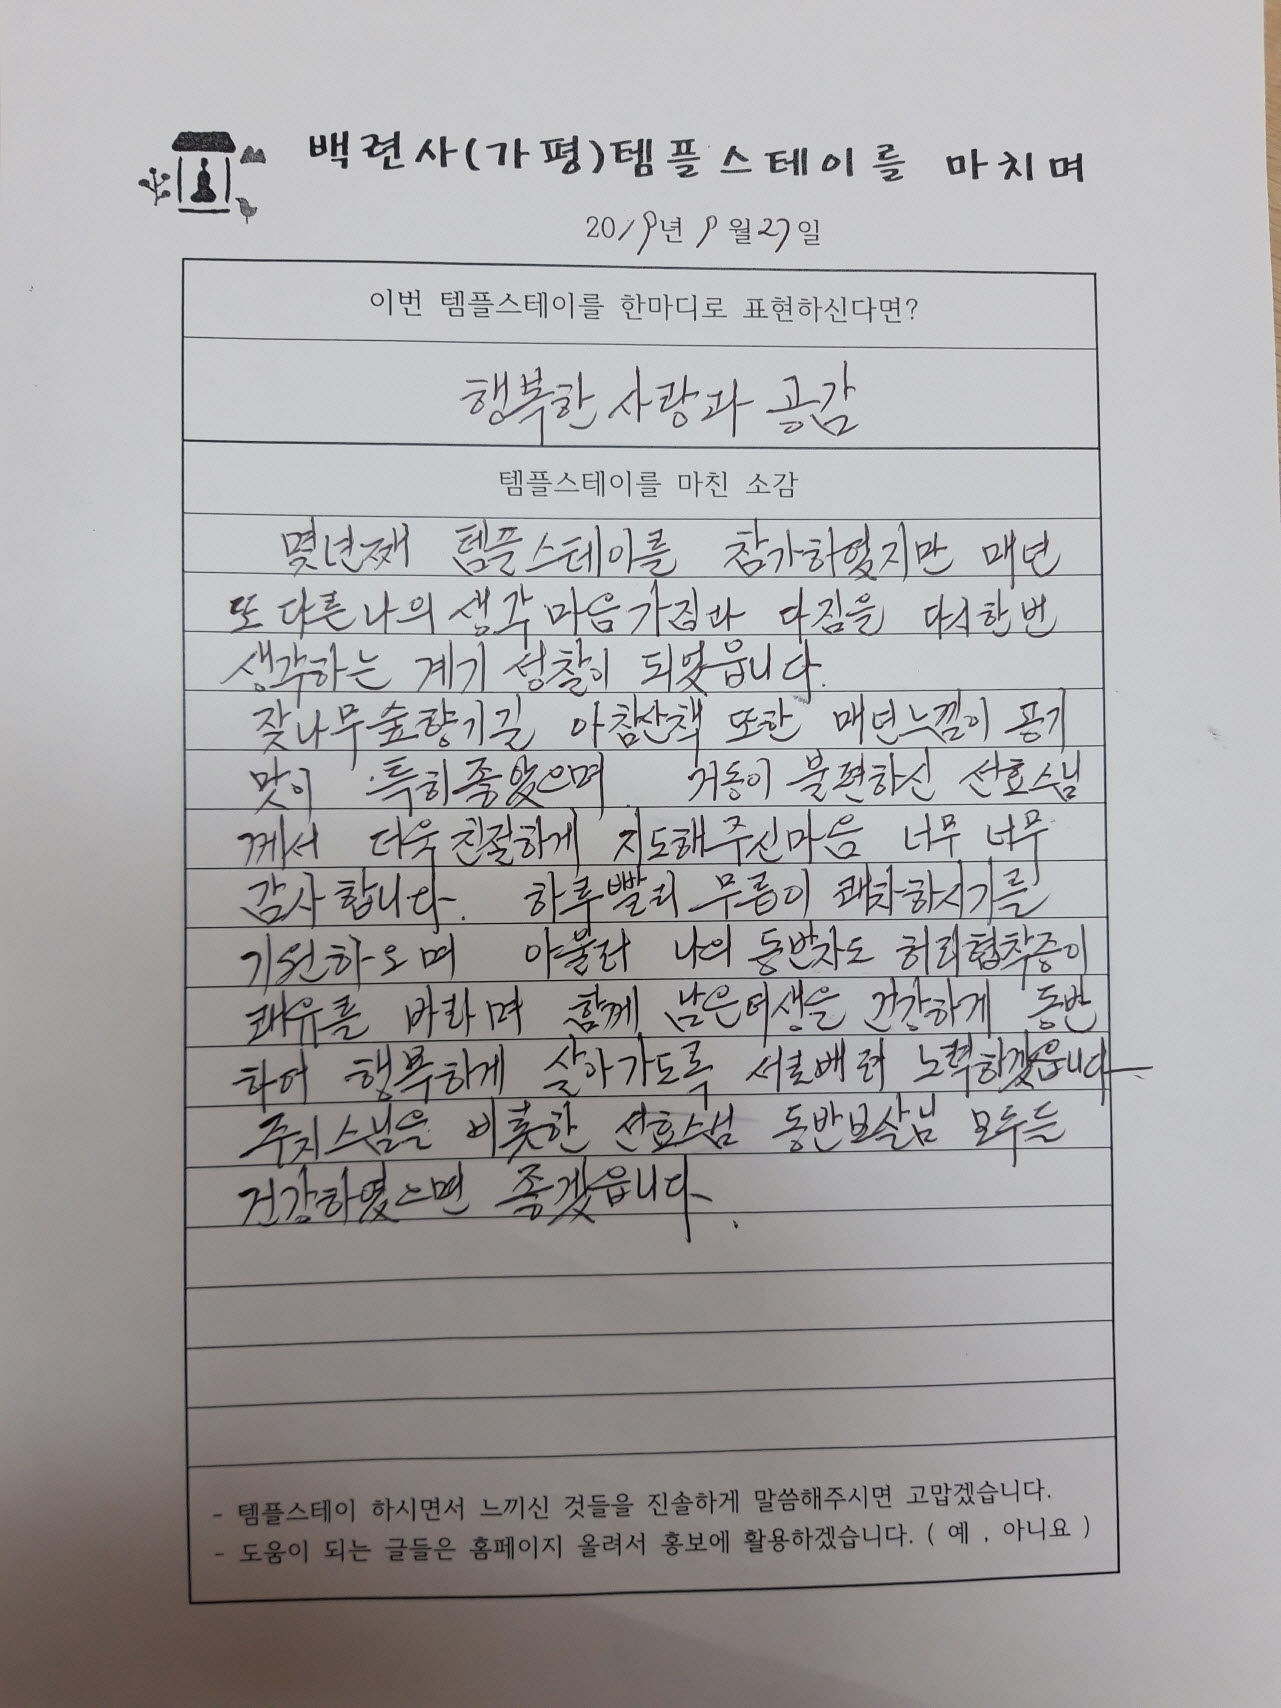 백련사(가평)템플스테이를 마치며
2019년 9월27일
이번 템플스테이를 한마디로 표현하신다면?
행복한 사랑과 공감
템플스테이를 마친 소감
몇년째 템플스테이를 참가하였지만 매년
또 다른 나의 생각 마음가짐과 다짐을 다시한번
생각하는 계기 성찰이 되었읍니다.
잣나무숲향기길 아침산책 또한 매년느낌이 공기
맛이 특히좋았으며 거동이 불편하신 선효스님
께서 더욱 친절하게 지도해주신마음 너무 너무
감사합니다. 하루빨리 무릎이 쾌차하시기를
기원하오며 아울러 나의 동반자도 허리협착증이
쾌유를 바라며 함께 남은여생을 건강하게 동반
하여 행복하게 살아가도록 서로배려 노력하겠읍니다
주지스님을 비롯한 선효스님 동반보살님 모두들
건강하였으면 좋겠읍니다.
- 템플스테이 하시면서 느끼신 것들을 진솔하게 말씀해주시면 고맙겠습니다.
- 도움이 되는 글들은 홈페이지 올려서 홍보에 활용하겠습니다. ( 예 , 아니요 )